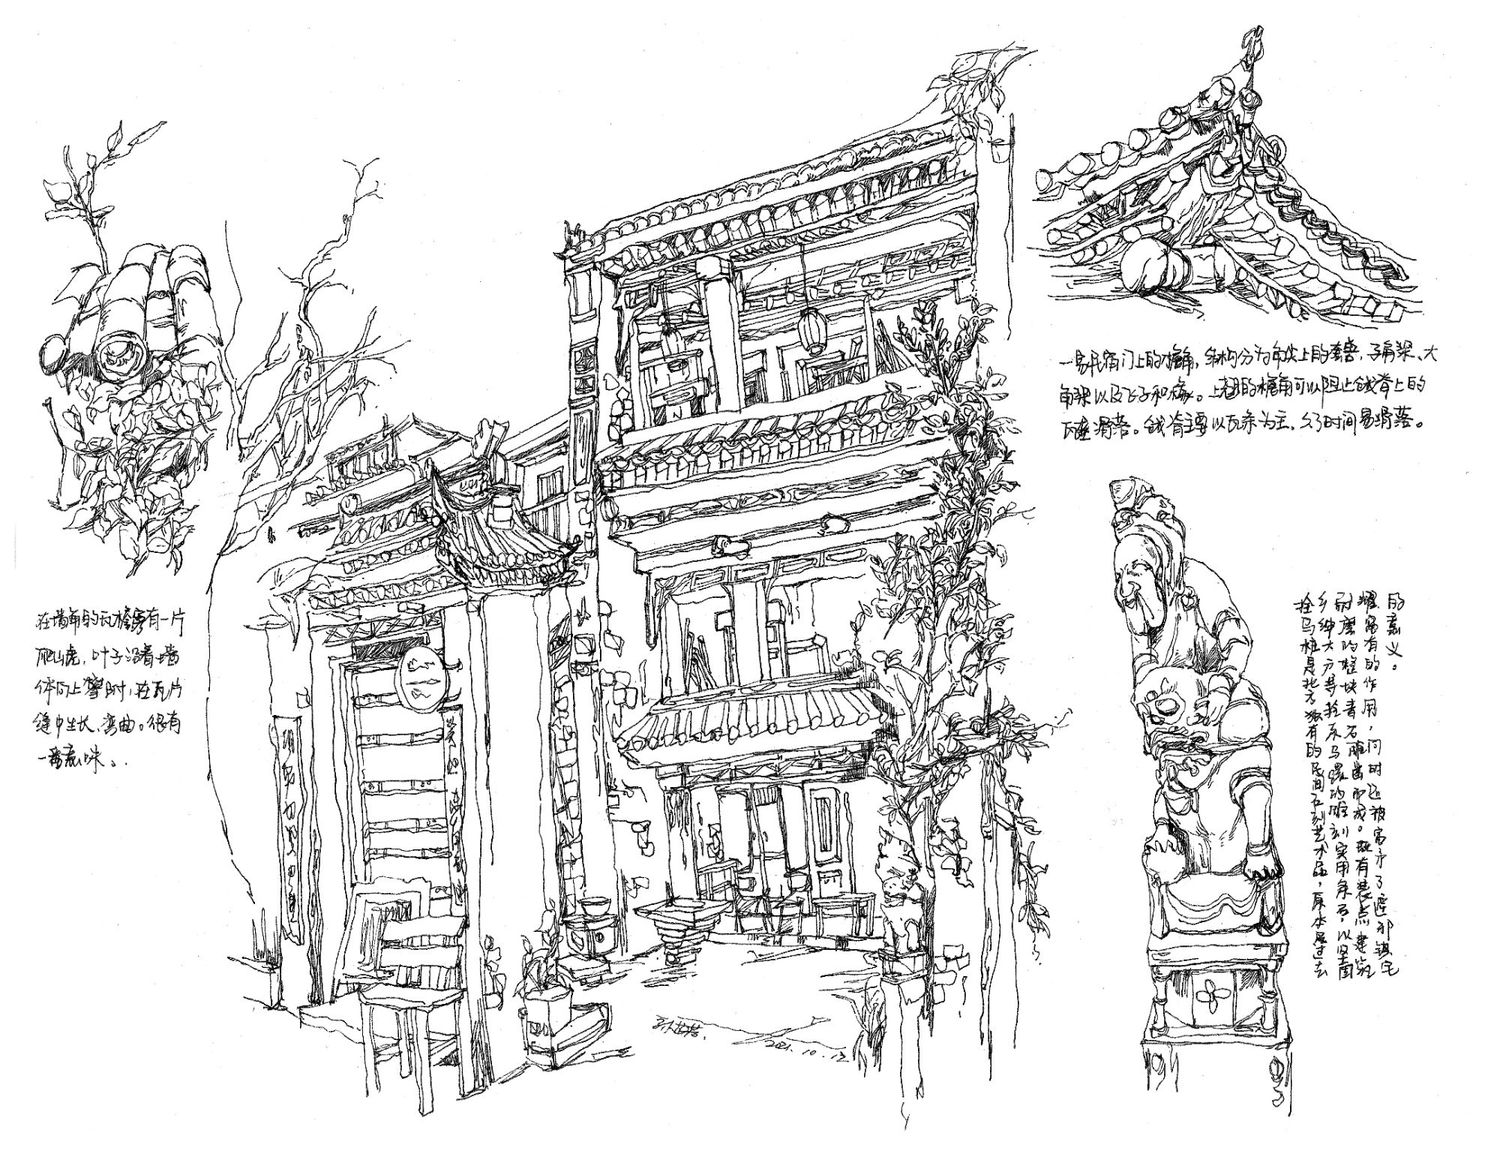 在墙角的瓦檐旁有一片
爬山虎，叶子沿着墙
体向上攀附，在瓦片
缝中生长、弯曲。很有
一番意味。
一易民宿门上的檐角，结构分为 上的套兽，子角梁、大
角梁以及飞子和椽。上翘的檐角可以阻止戗脊上的
瓦 滑落。戗脊主要以瓦条为主，久了时间易滑落。
拴马桩是北方独有的民间石刻艺术品，原本是过去
乡绅大户等拴系马骡的雕刻实用条石，以坚固
耐磨的整块青石雕凿而成。既有装点建筑
富有的作用，同时还被寄予了避邪镇宅
的意义。
2021.10.12